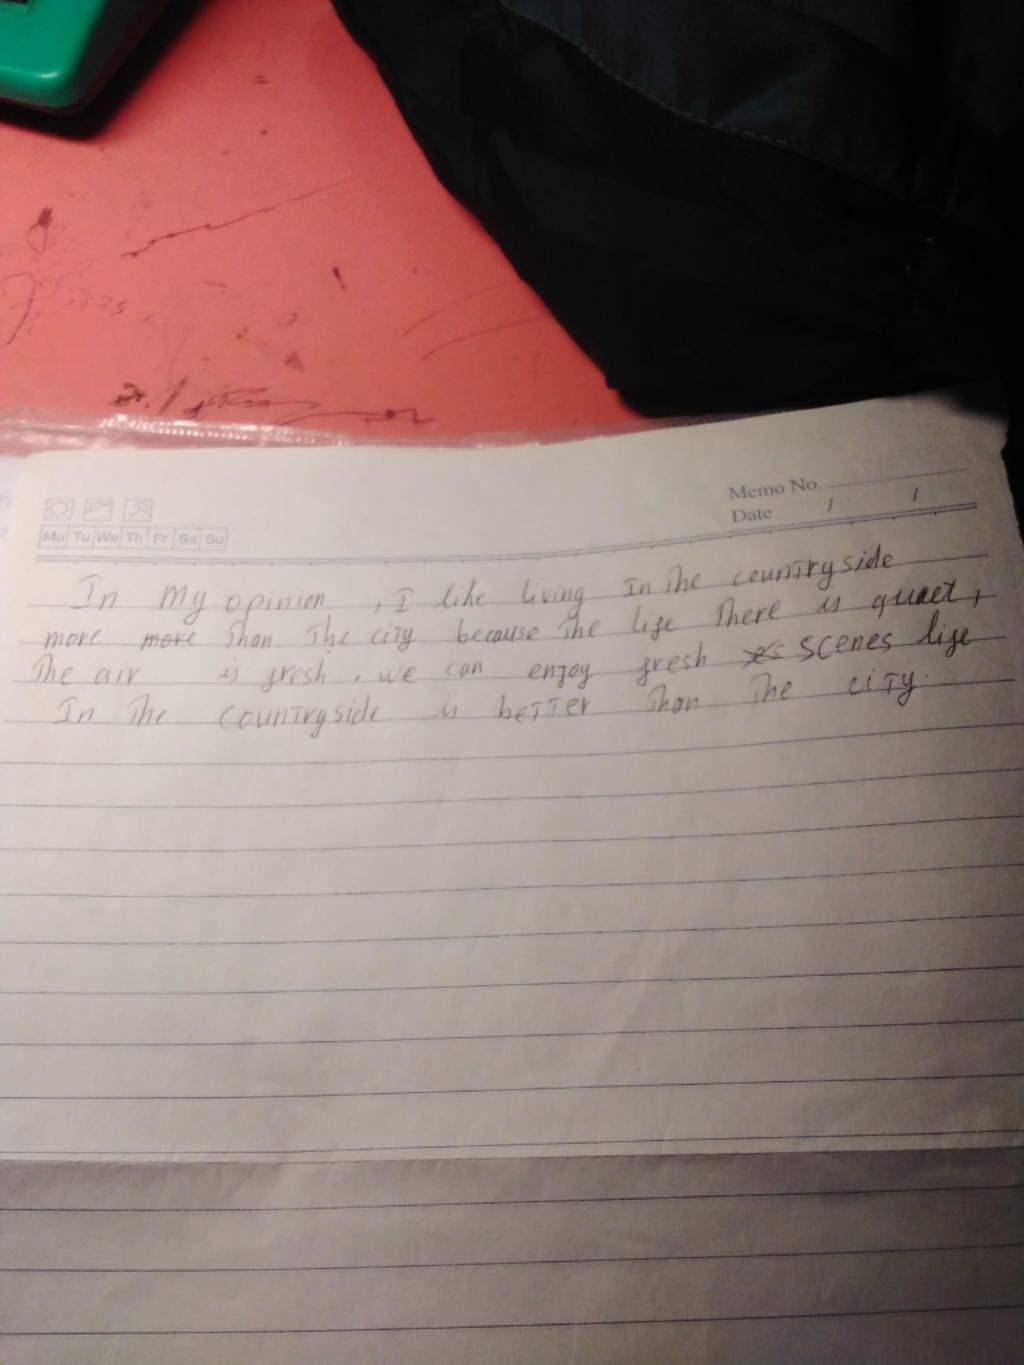 Memo No.
Date / /
Mo Tu We Th Fr Sa Su
In My opinion , I like living In the countryside
more more than the city because the life there is quiaet,
the air is fresh . we can enjoy fresh scenes life
In the countryside is better than the city.